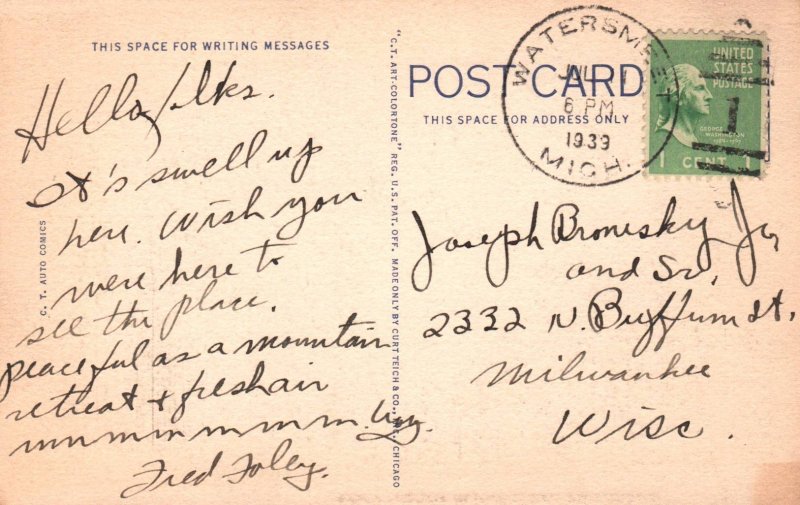 THIS SPACE FOR WRITING MESSAGES
Hello folks.
It's swell up
here. Wish you
were here to
see the place.
peaceful as a mountain
retreat & fresh air
mmmmmmmmm.
Fred Foley.
C. T. AUTO COMICS
"C.T. ART-COLORTONE" REG. U.S. PAT. OFF. MADE ONLY BY CURT TEICH & CO., INC., CHICAGO
POST CARD
THIS SPACE FOR ADDRESS ONLY
WATERSMEET
JUL
6 PM
1939
MICH.
UNITED
STATES
POSTAGE
1
GEORGE
WASHINGTON
1 CENT 1
Joseph Bronesky Jr,
and Sr,
2332 N. Buffum St,
Milwaukee
Wisc.